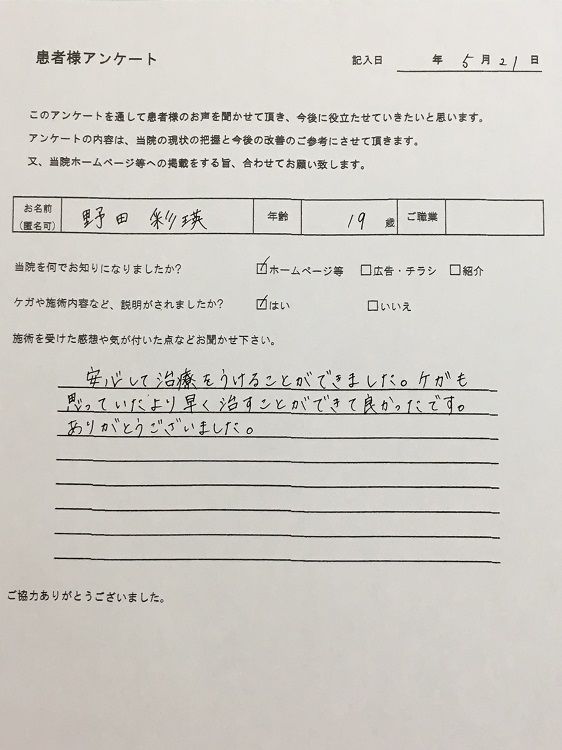 患者様アンケート 記入日 年 5 月 21 日
このアンケートを通して患者様のお声を聞かせて頂き、今後に役立たせていきたいと思います。
アンケートの内容は、当院の現状の把握と今後の改善のご参考にさせて頂きます。
又、当院ホームページ等への掲載をする旨、合わせてお願い致します。
お名前 野田 彩瑛 年齢 19 歳 ご職業
(匿名可)
当院を何でお知りになりましたか? ☑ホームページ等 □広告・チラシ □紹介
ケガや施術内容など、説明がされましたか? ☑はい □いいえ
施術を受けた感想や気が付いた点などお聞かせ下さい。
安心して治療をうけることができました。ケガも
思っていたより早く治すことができて良かったです。
ありがとうございました。
ご協力ありがとうございました。